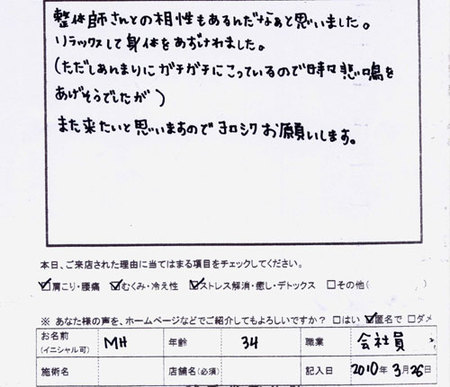 整体師さんとの相性もあるんだなぁと思いました。
リラックスして身体をあずけれました。
(ただしあんまりにガチガチにこっているので時々悲鳴を
あげそうでしたが)
また来たいと思いますのでヨロシクお願いします。
本日、ご来店された理由に当てはまる項目をチェックしてください。
☑肩こり・腰痛 ☑むくみ・冷え性 ☑ストレス解消・癒し・デトックス □その他( )
※ あなた様の声を、ホームページなどでご紹介してもよろしいですか? □はい ☑匿名で □ダメ
お名前 (イニシャル可) MH 年齢 34 職業 会社員
施術名 店舗名(必須) 記入日 2010年3月26日